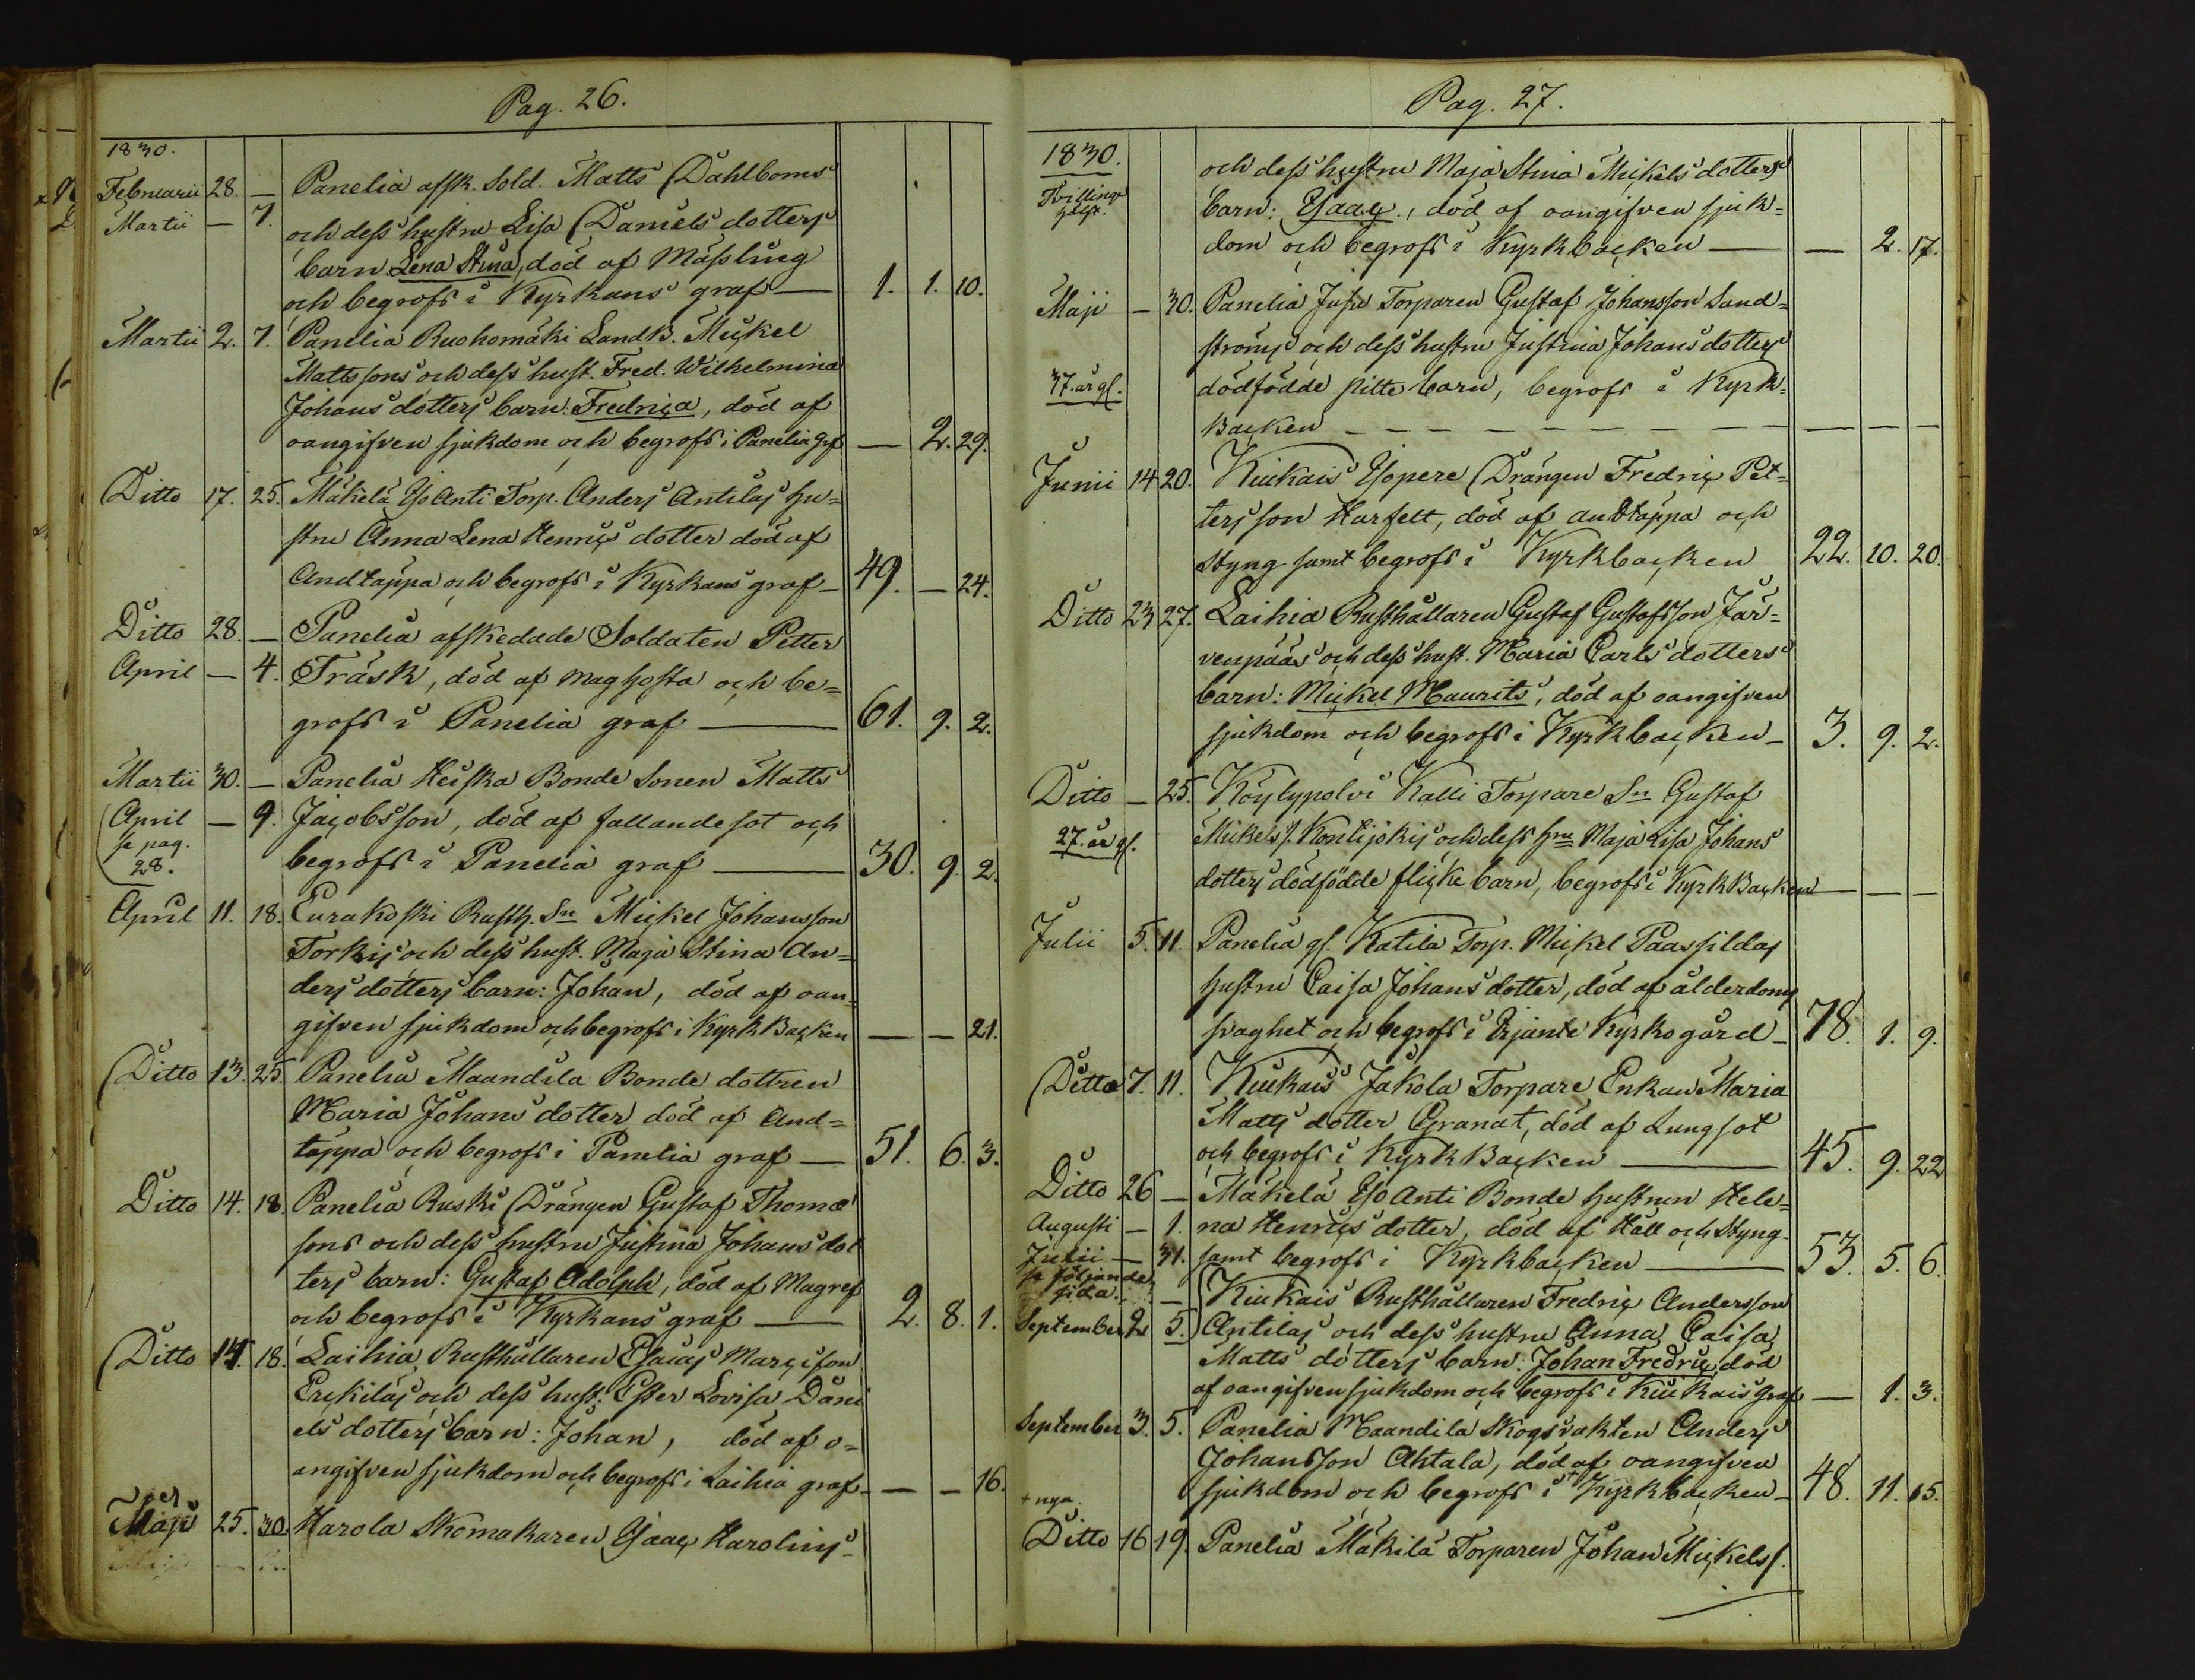 Pag. 26.
1830.
Februarii 28. — Panelia afsk. Sold. Matts Dahlboms
Martii — 7. och dess hustru Lisa Daniels dotters
barn Lena Stina, död af Mässling
och begrofs i Kyrkans graf — 1. 1. 10.
Martii 2. 7. Panelia Ruohomäki Landb. Mickel
Mattssons och dess hust. Fred. Wilhelmina
Johans dotters barn: Fredrica, död af
oangifven sjukdom och begrofs i Panelia grf — 2. 29.
Ditto 17. 25. Mäkelä Iso Anti Torp. Anders Antilas hu=
stru Anna Lena Henrics dotter död af
Andtäppa och begrofs i Kyrkans graf — 49. — 24.
Ditto 28. — Panelia afskedade Soldaten Petter
April — 4. Träsk, död af maghosta och be=
grofs i Panelia graf — 61. 9. 2.
Martii 30. — Panelia Heiska Bonde Sonen Matts
April — 9. Jacobsson, död af fallandesot och
se pag.
28. begrofs i Panelia graf — 30. 9. 2.
April 11. 18. Eurakoski Rusth. Sn Mickel Johansson
Torkis och dess hust. Maja Stina An=
ders dotters barn: Johan, död af oan=
gifven sjukdom och begrofs i KyrkBacken — — 21.
Ditto 13. 25. Panelia Maandila Bonde dottren
Maria Johans dotter död af And=
täppa och begrofs i Panelia graf — 51. 6. 3.
Ditto 14. 18. Panelia Ruski Drängen Gustaf Thomæ
sons och dess hustru Justina Johans dot
ters barn: Gustaf Adolph, död af Magref
och begrofs i Kyrkans graf — 2. 8. 1.
Ditto 14. 18. Laihia Rusthållaren Esaias Marcisson
Erckiläs och dess hust. Ester Lovisa Dani
els dotters barn: Johan, död af o=
angifven sjukdom och begrofs i Laihia graf — — 16.
Maji 25. 30. Harola Skomakaren Isaac Harolins
Pag. 27.
1830. och dess hustru Maja Stina Mickels dotters
Tvillinge barn: Isaac, död af oangifven sjuk=
dom och begrofs i Kyrkbacken — — 2. 17.
Maji — 30. Panelia Juse Torparen Gustaf Johansson Sand=
ströms och dess hustru Justina Johans dotters
37. år gl. dödfödde pitte barn, begrofs i Kyrk=
Backen — — —
Junii 14 20. Kiukais Isopere Drängen Fredric Pet=
tersson Harfelt, död af andtäppa och
Styng samt begrofs i Kyrkbacken 22. 10. 20.
Ditto 23 27. Laihia Rusthållaren Gustaf Gustafsson Jär=
venpääs och dess hust. Maria Carls dotters
barn: Mickel Maurits, död af oangifven
sjukdom och begrofs i Kyrkbacken — 3. 9. 2.
Ditto — 25. Köylypolvi Kalli Torpare Sn Gustaf
27. år gl. Mickelss. Kontijokis och dess hru Maja Lisa Johans
dotters dödfödde flicke barn, begrofs i KyrkBacken — — —
Julii 5. 11. Panelia gl. Katila Torp. Mickel Paassildas
hustru Caisa Johans dotter, död af ålderdoms
svaghet och begrofs i Irjante Kyrkogård — 78. 1. 9.
Ditto 7. 11. Kiukais Jakola Torpare Enkan Maria
Matts dotter Granat, död af Lungsot
och begrofs i KyrkBacken — 45. 9. 22
Ditto 26 — Mäkelä Iso Anti Bonde hustrun Hele=
Augusti — 1. na Henrics dotter, död af Håll och Styng
Julii — 31. samt begrofs i Kyrkbacken — 53. 5. 6.
se följande
sida. — Kiukais Rusthållaren Fredric Andersson
September 2 5. Antilas och dess hustru Anna Caisa
Matts dotters barn: Johan Fredric, död
af oangifven sjukdom och begrofs i Kiukais graf — 1. 3.
September 3. 5. Panelia Maandila Skogsvakten Anders
Johansson Ahtala, död af oangifven
sjukdom och begrofs i + Kyrkbacken — 48. 11. 15.
+ nya.
Ditto 16 19. Panelia Mäkilä Torparen Johan Mickelss.